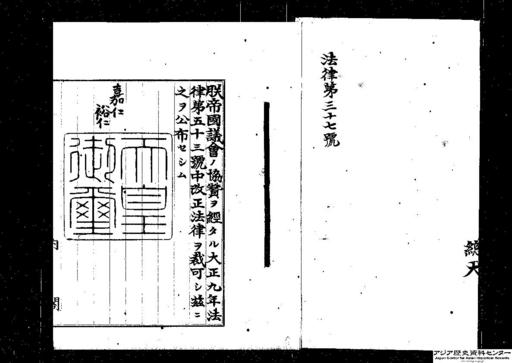 法律第三十七號
朕帝國議會ノ協賛ヲ經タル大正九年法
律第五十三號中改正法律ヲ裁可シ茲ニ
之ヲ公布セシム
嘉仁
裕仁
天皇
御璽
内閣
アジア歴史資料センター
Japan Center for Asian Historical Records